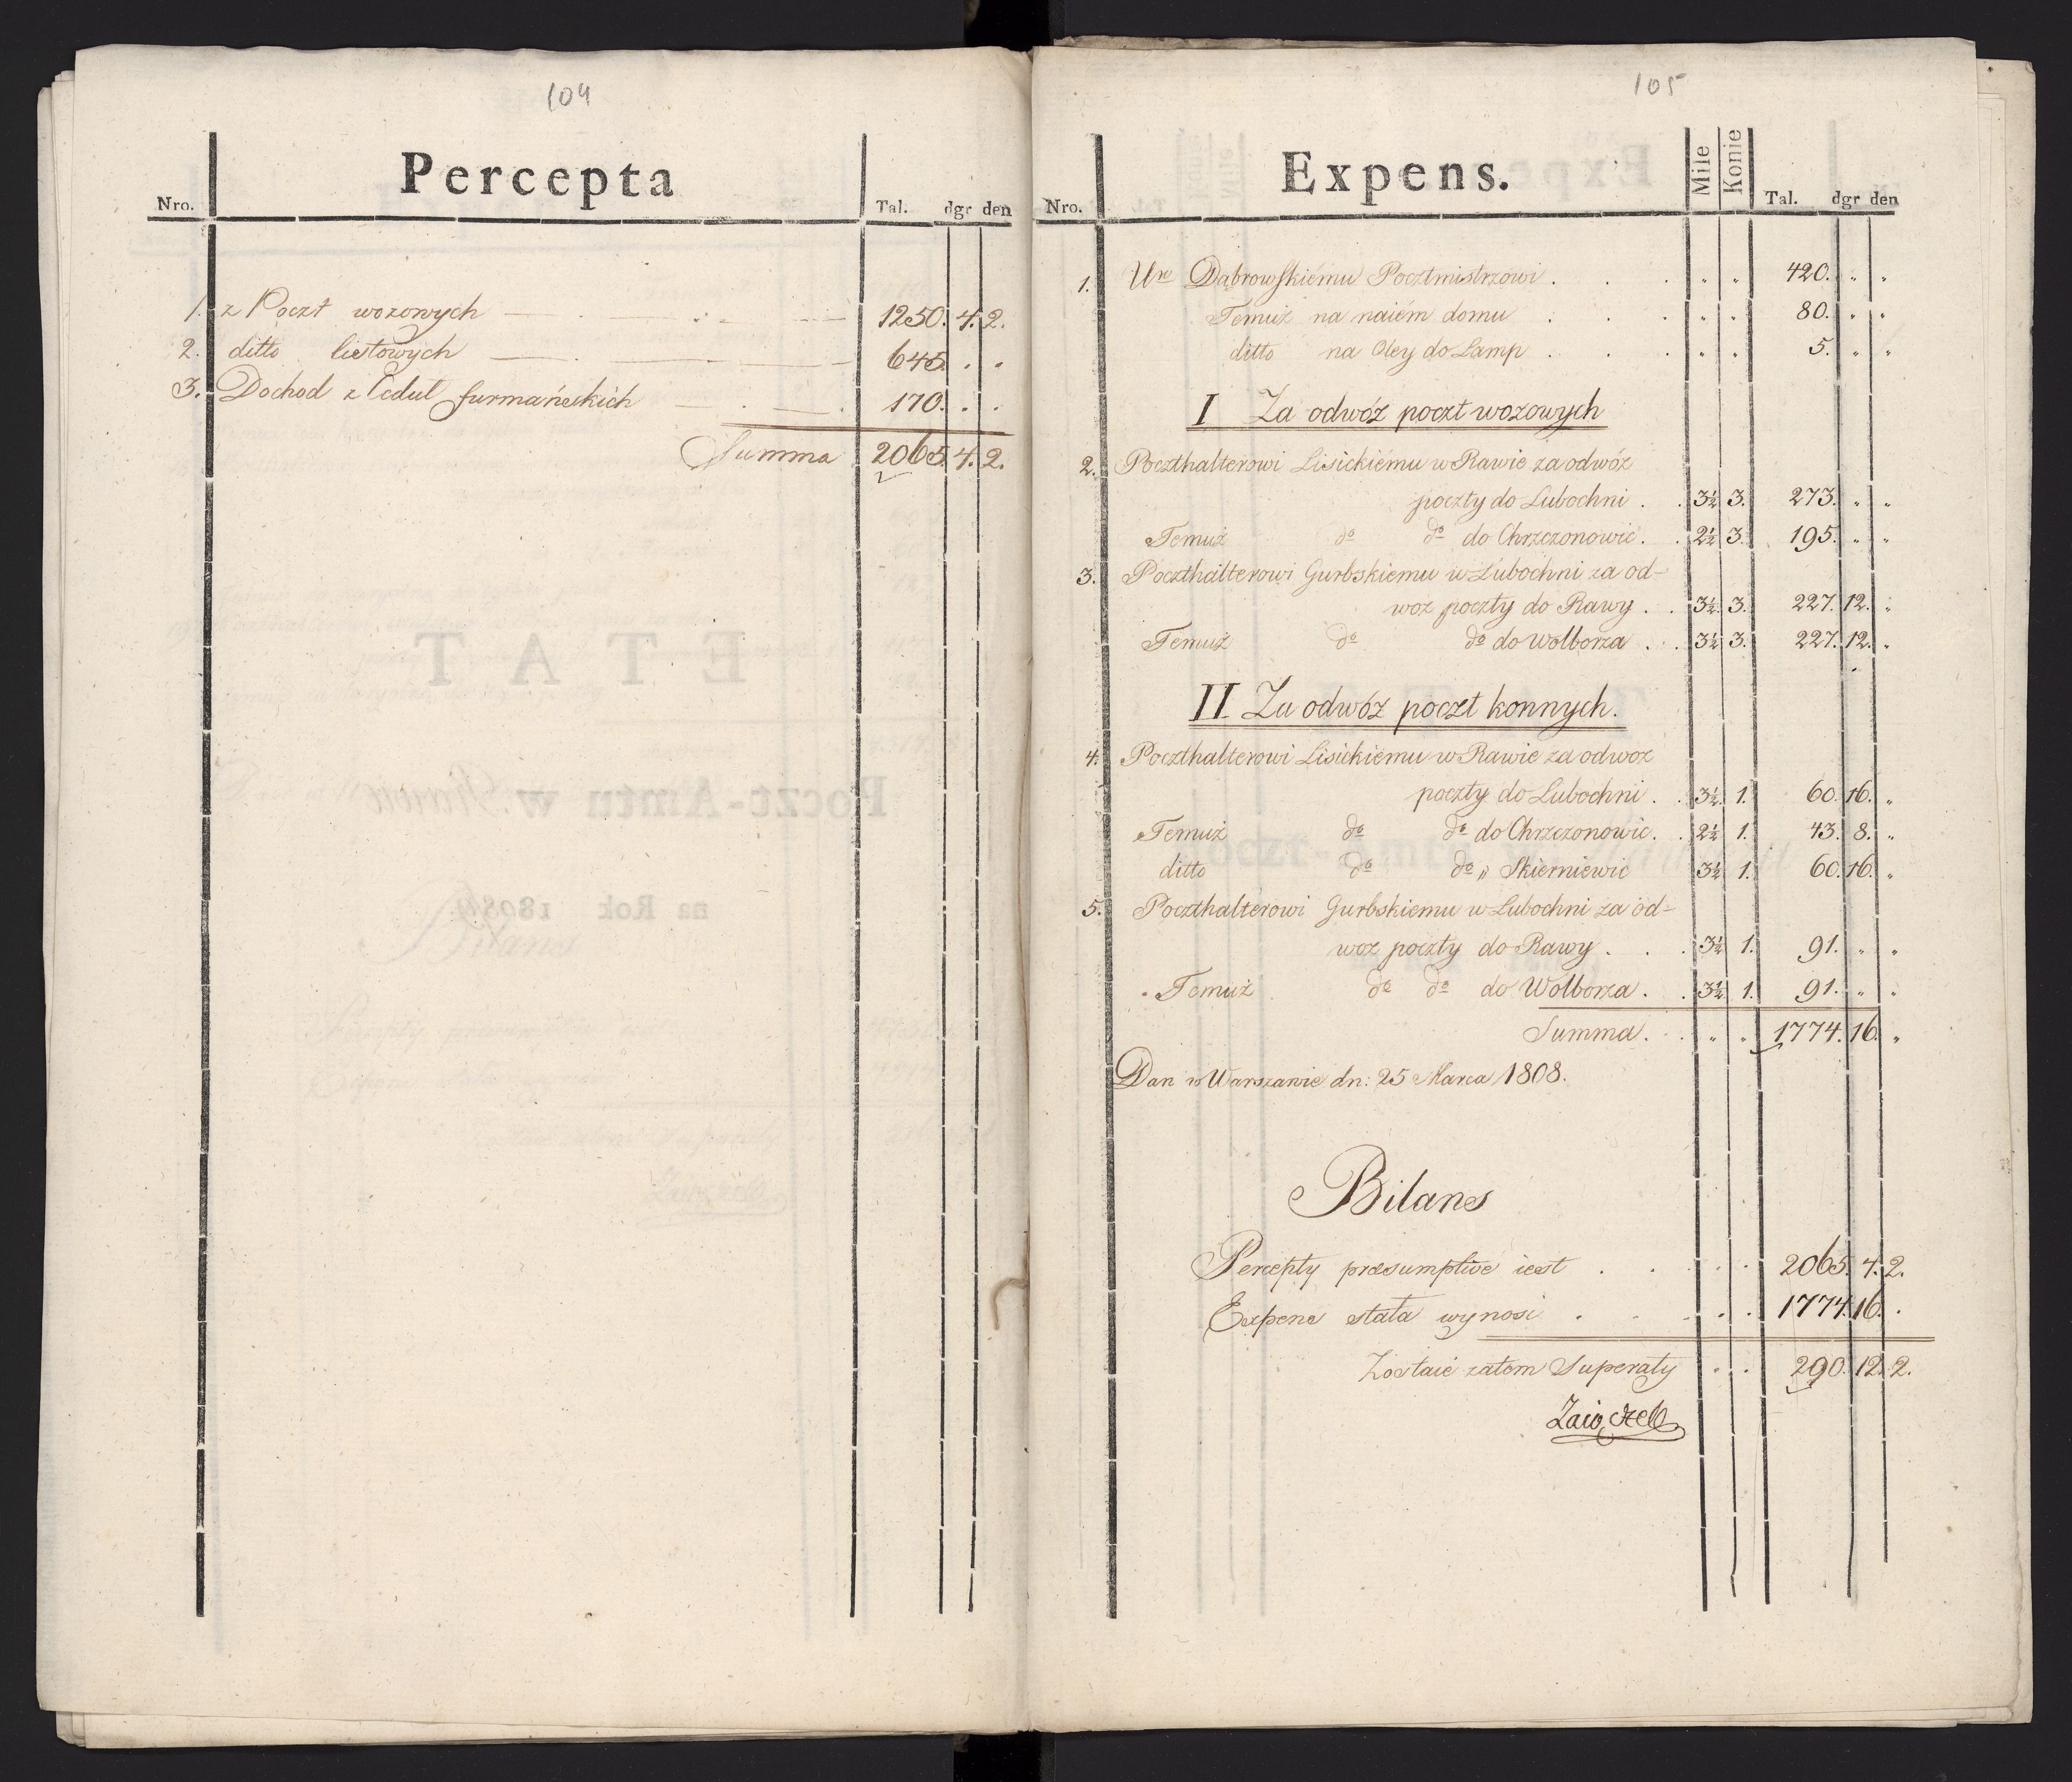 104
Percepta
Nro. Tal. dgr den
1. z Poczt wozowych 1250. 4. 2.
2. ditto listowych 645. . .
3. Dochod z Cedul furmańskich 170. . .
Summa 2065. 4. 2.
105
Expens.
Nro. Mile Konie Tal. dgr den
1. Ure Dąbrowskiému Pocztmistrzowi . . . " " 420. " "
Temuż na naiém domu . . . " " 80. " "
ditto na Oley do Lamp . . . " " 5. " "
I Za odwóz poczt wozowych
2. Poczthalterowi Lisickiému w Rawie za odwóz
poczty do Lubochni . . 3½ 3. 273. " "
Temuż do do do Chrzczonowic . . 2½ 3. 195. " "
3. Poczthalterowi Gurbskiemu w Lubochni za od-
woz poczty do Rawy . . 3½ 3. 227. 12. "
Temuż do do do Wolborza . . 3½ 3. 227. 12. "
II Za odwóz poczt konnych.
4. Poczthalterowi Lisickiému w Rawie za odwoz
poczty do Lubochni . . 3½ 1. 60. 16. "
Temuż do do do Chrzczonowic . . 2½ 1. 43. 8. "
ditto do do " Skierniewic 3½ 1. 60. 16. "
5. Poczthalterowi Gurbskiemu w Lubochni za od-
woz poczty do Rawy . . . 3½ 1. 91. " "
Temuż do do do Wolborza . . 3½ 1. 91. " "
Summa . . " " 1774. 16. "
Dan w Warszawie dn: 25 Marca 1808.
Bilans
Percepty præsumptive iest . . . . . 2065. 4. 2.
Expens stała wynosi . . . . . 1774. 16. .
Zostaie zatem Superaty . . 290. 12. 2.
Zaiączek